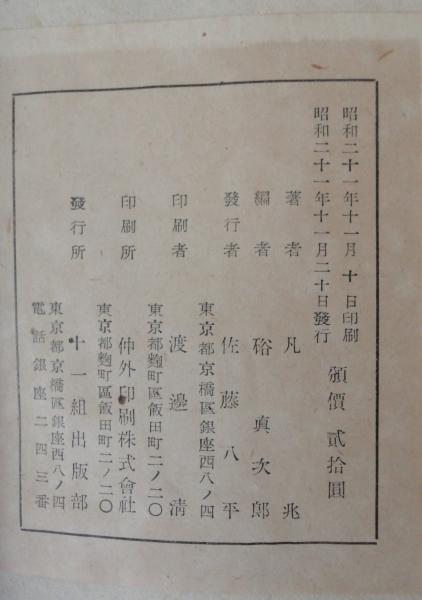 昭和二十一年十一月 十 日印刷
昭和二十一年十一月二十日發行
頒價 貳拾圓
著者 凡兆
編者 硲真次郎
發行者 佐藤八平
東京都京橋區銀座西八ノ四
印刷者 渡邊清
東京都麴町區飯田町二ノ二〇
印刷所 仲外印刷株式會社
東京都麴町區飯田町二ノ二〇
發行所 十一組出版部
東京都京橋區銀座西八ノ四
電話銀座二四三番